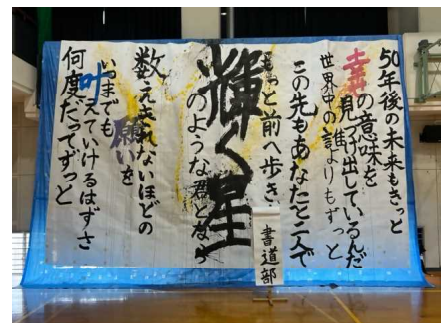 50年後の未来もきっと
幸の意味を
見つけ出しているんだ
世界中の誰よりもずっと
この先もあなたと二人で
もっと前へ歩き
輝く星
のような君となら
数えきれないほどの
願いを
いつまでも
叶えていけるはずさ
何度だってずっと
書道部